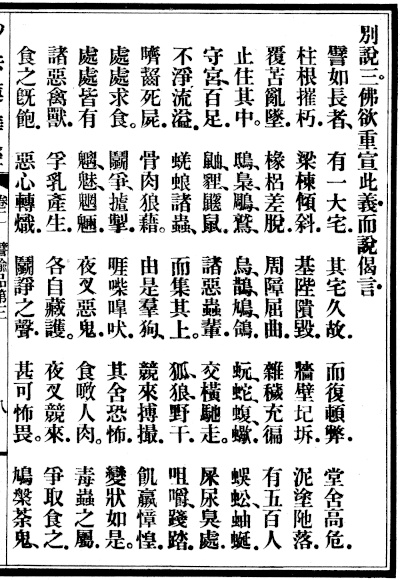 別說三。佛欲重宣此義而說偈言
譬如長者、有一大宅 其宅久故、而復頓弊、堂舍高危、
柱根摧朽、梁棟傾斜、基陛隤毀、牆壁圮坼、泥塗阤落、
覆苫亂墜、椽梠差脫、周障屈曲、雜穢充徧、有五百人
止住其中。鴟梟鵰鷲、烏鵲鳩鴿、蚖蛇蝮蠍、蜈蚣蚰蜒、
守宮百足、鼬貍鼷鼠、諸惡蟲輩、交橫馳走。屎尿臭處
不淨流溢、蜣蜋諸蟲、而集其上。狐狼野干、咀嚼踐踏、
嚌齧死屍、骨肉狼藉。由是羣狗、競來搏撮、飢羸慞惶
處處求食。鬭爭摣掣、啀喍嘷吠。其舍恐怖、變狀如是。
處處皆有 魑魅魍魎 夜叉惡鬼、食噉人肉。毒蟲之屬
諸惡禽獸、孚乳產生、各自藏護。夜叉競來、爭取食之
食之既飽、惡心轉熾、鬭諍之聲、甚可怖畏。鳩槃荼鬼、